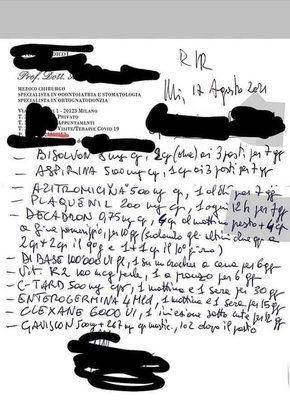 R/R
Prof. Dott.
MEDICO CHIRURGO
SPECIALISTA IN ODONTOIATRIA E STOMATOLOGIA
SPECIALISTA IN ORTOGNATODONZIA
1 - 20123 MILANO
Mi, 12 Agosto 2021
T. PRIVATO
T. APPUNTAMENTI
T. VISITE/TERAPIE COVID 19
- BISOLVON 8 mg cp, 2 cp ai 3 pasti per 7 gg
- ASPIRINA 500 mg cp, 1 cp ai 3 pasti per 7 gg
- AZITROMICINA 500 mg cp, 1 al dì per 7 gg
- PLAQUENIL 200 mg cp, 1 ogni 12 h per 7 gg
- DECADRON 0,75 mg cp, 4 cp al mattino pasto + 4 cp
a per 10 gg ultimi due gg a
2 cp + 2 cp il 9° g e 1 + 1 il 10° giorno)
- DIBASE 100000 UI fl, 1 su a cena per 6 gg
- Vit. K2 100 mcg perle, 1 a pranzo per 6 gg
- C-TARD 500 mg cps, 1 mattino e 1 sera per 30 gg
- ENTEROGERMINA 4 Mld, 1 mattina e 1 sera per 15 gg
- CLEXANE 6000 UI, 1 iniezione sotto cute per 12 gg
- GAVISCON 500 mg + 267 mg cp mastic., 1 o 2 dopo il pasto